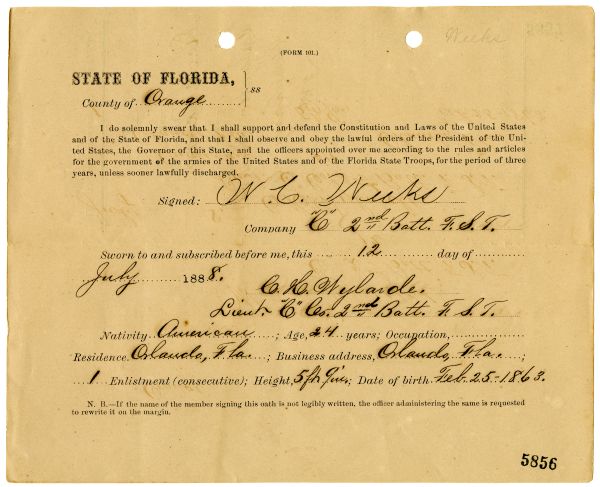 Weeks
(FORM 101.)
STATE OF FLORIDA, } ss
County of Orange
I do solemnly swear that I shall support and defend the Constitution and Laws of the United States
and of the State of Florida, and that I shall observe and obey the lawful orders of the President of the Uni-
ted States, the Governor of this State, and the officers appointed over me according to the rules and articles
for the government of the armies of the United States and of the Florida State Troops, for the period of three
years, unless sooner lawfully discharged.
Signed: W. C. Weeks
Company "C" 2nd Batt. F. S. T.
Sworn to and subscribed before me, this 12 day of
July 1888. C. H. Wylarde.
Lieut. "C" Co. 2nd Batt. F. S. T.
Nativity American; Age, 24 years; Occupation,
Residence Orlando, Fla.; Business address, Orlando, Fla.;
1 Enlistment (consecutive); Height, 5 ft 9 in; Date of birth Feb. 25. 1863.
N. B.—If the name of the member signing this oath is not legibly written, the officer administering the same is requested
to rewrite it on the margin.
5856